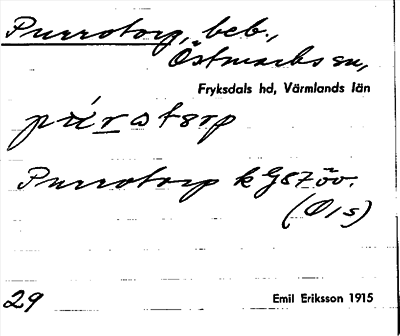 Purrotorp, beb.,
Östmarks sn,
Fryksdals hd, Värmlands län
Purrotorp k G87 öv.
(Ö1s)
29
Emil Eriksson 1915